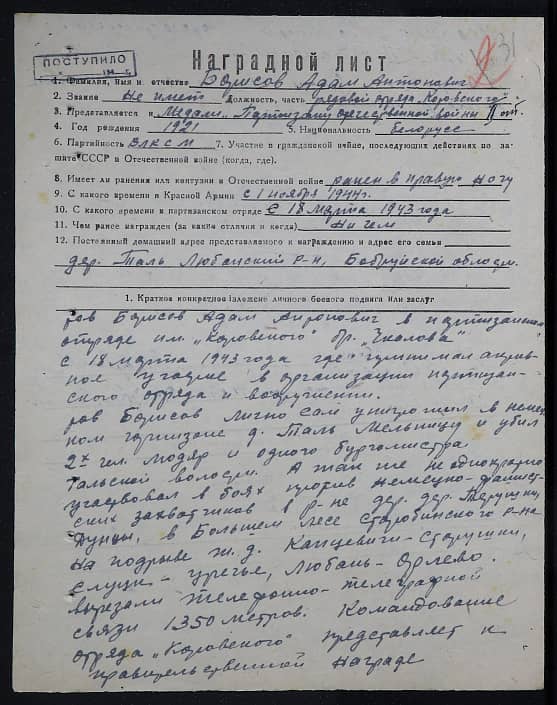 ПОСТУПИЛО
Наградной лист
1. Фамилия, имя и отчество Борисов Адам Антонович
2. Звание не имеет Должность, часть рядовой отряда "Каровского"
3. Представляется к Медали "Партизану Отечественной войны II ст.
4. Год рождения 1921 5. Национальность белорусс
6. Партийность ВЛКСМ 7. Участие в гражданской войне, последующих действиях по за-
щите СССР в Отечественной войне (когда, где).
8. Имеет ли ранения или контузии в Отечественной войне ранен в правую ногу
9. С какого времени в Красной Армии с 1 ноября 1944г.
10. С какого времени в партизанском отряде с 18 марта 1943 года
11. Чем ранее награжден (за какие отличия и когда) ни чем
12. Постоянный домашний адрес представляемого к награждению и адрес его семьи
дер. Таль Любанский р-н, Бобруйской области.
1. Краткое конкретное изложение личного боевого подвига или заслуг
тов Борисов Адам Антонович в партизанском
отряде им. "Каровского" бр. "Чкалова"
с 18 марта 1943 года где принимал актив-
ное участие в организации партизан-
ского отряда и вооружении.
тов Борисов лично сам уничтожил в немец
ком гарнизоне д. Таль мельницу и убил
2х чел. мадяр и одного бургомистра
Тальской волости. А так же неоднократно
участвовал в боях против немецко-фашист-
ских захватчиков в р-не дер. дер.
в Большем лесе Старобинского р-на
На подрыве ж.д. Капцевичи-Старушки,
Слуцк-Уречье, Любань-Орлево.
вырезали телефонно-телеграфной
связи 1350 метров. Командование
отряда "Каровского" представляет к
правительственной награде